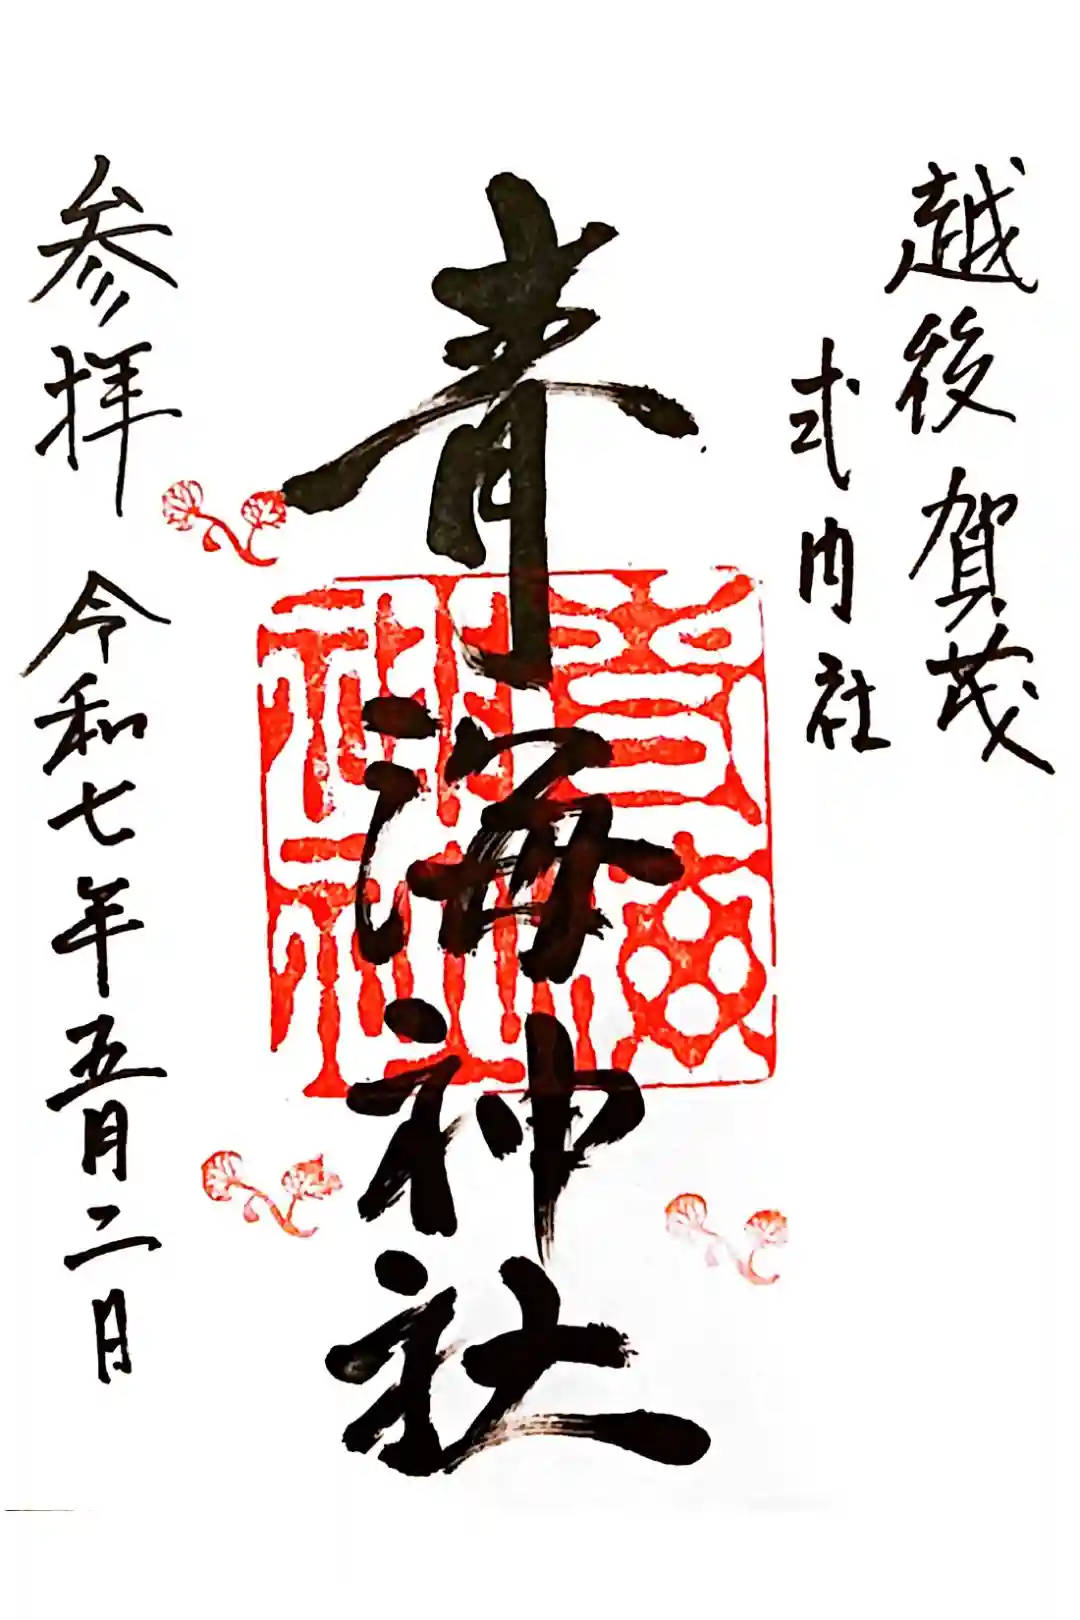 越後賀茂
式内社
青海神社
参拝 令和七年五月二日